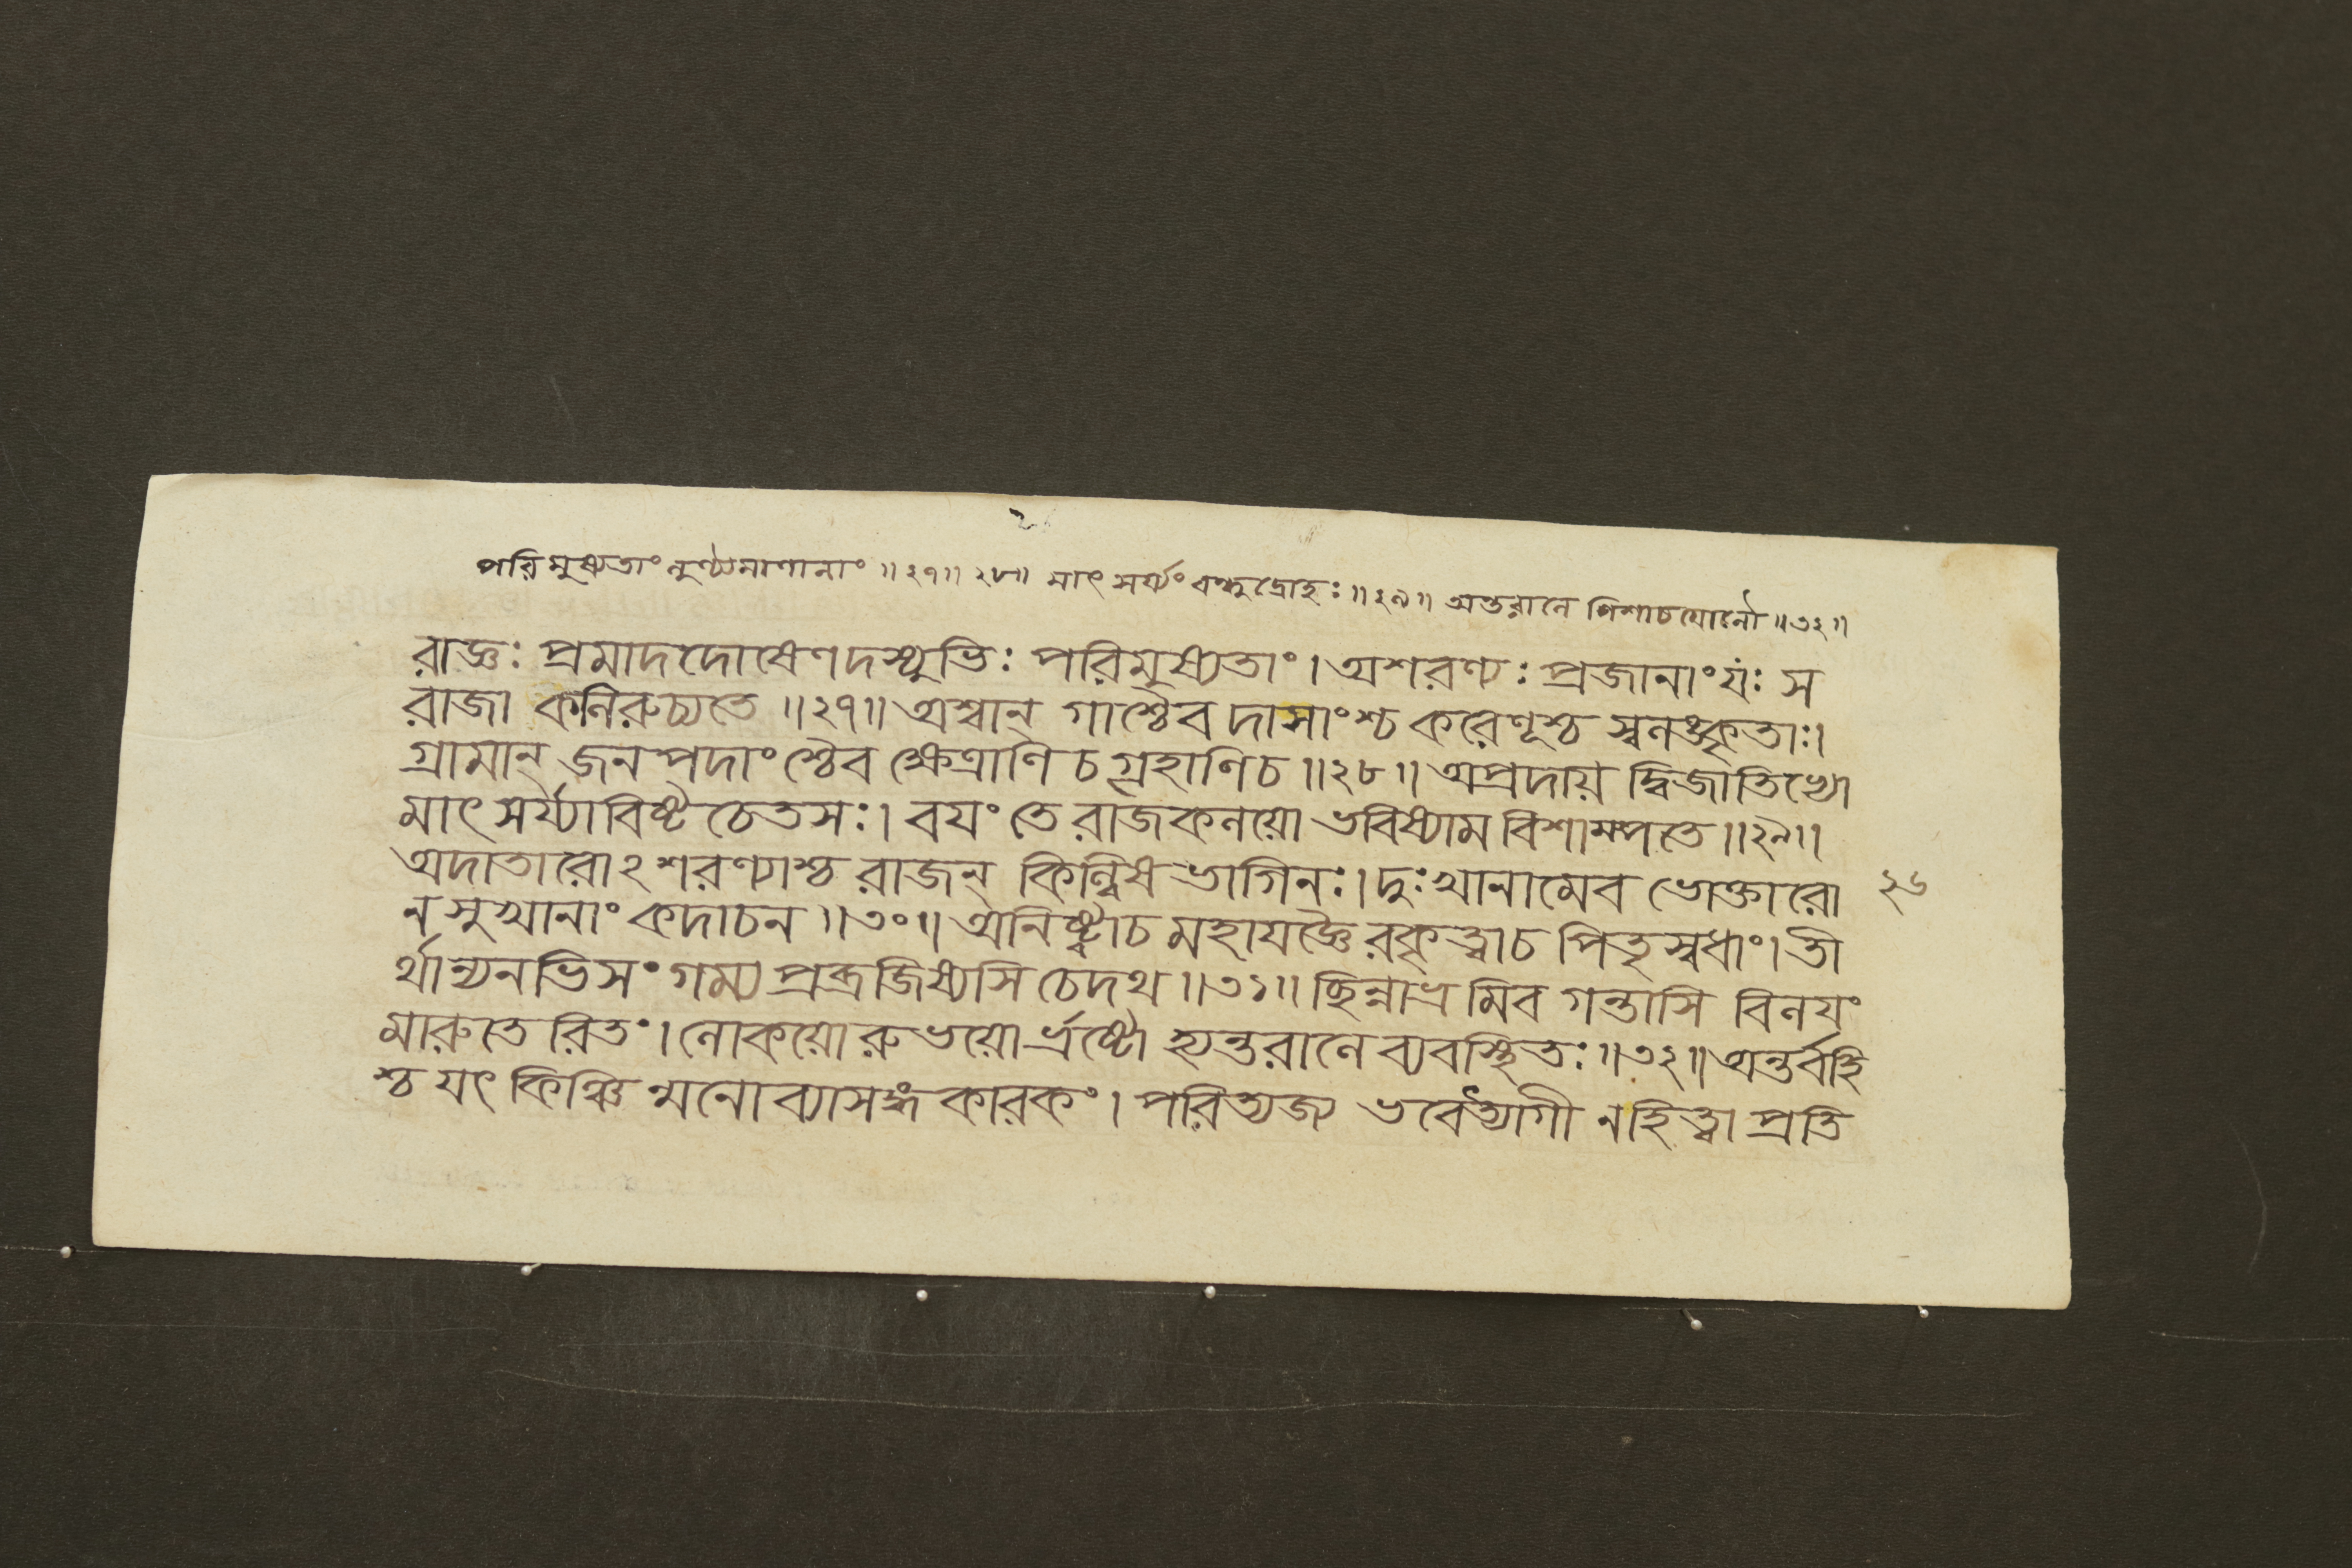 পরিমুষ্যতাং লুণ্ঠ্যমাণানাং ॥২৭॥২৮॥ মাৎসর্য্যং বন্ধুদ্রোহঃ ॥২৯॥ অন্তরালে পিশাচযোনৌ ॥৩২॥
রাজ্ঞঃ প্রমাদদোষেণ দস্যুভিঃ পরিমুষ্যতাং। অশরণ্যঃ প্রজানাং যঃ স
রাজা কলিরুচ্যতে ॥২৭॥ অশ্বান্ গাশ্চৈব দাসাংশ্চ করেণূশ্চ স্বলঙ্কৃতাঃ।
গ্রামান্ জনপদাংশ্চৈব ক্ষেত্রাণি চ গৃহাণি চ ॥২৮॥ অপ্রদায় দ্বিজাতিভ্যো
মাৎসর্য্যাবিষ্টচেতসঃ। বয়ং তে রাজকলয়ো ভবিষ্যাম বিশাম্পতে ॥২৯॥
অদাতারোঽশরণ্যাশ্চ রাজন্ কিল্বিষভাগিনঃ। দুঃখানামেব ভোক্তারো
ন সুখানাং কদাচন ॥৩০॥ অনিষ্ট্বা চ মহাযজ্ঞৈরকৃত্বা চ পিতৃস্বধাং। তী
র্থান্যনভিসংগম্য প্রব্রজিষ্যসি চেদথ ॥৩১॥ ছিন্নাভ্রমিব গন্তাসি বিলয়ং
মারুতেরিতং। লোকয়োরুভয়োর্ভ্রষ্টো হ্যন্তরালে ব্যবস্থিতঃ ॥৩২॥ অন্তর্বহি
শ্চ যৎ কিঞ্চিন্মনোব্যাসঙ্গকারকং। পরিত্যজ্য ভবেত্ত্যাগী ন হিত্বা প্রতি
২৬